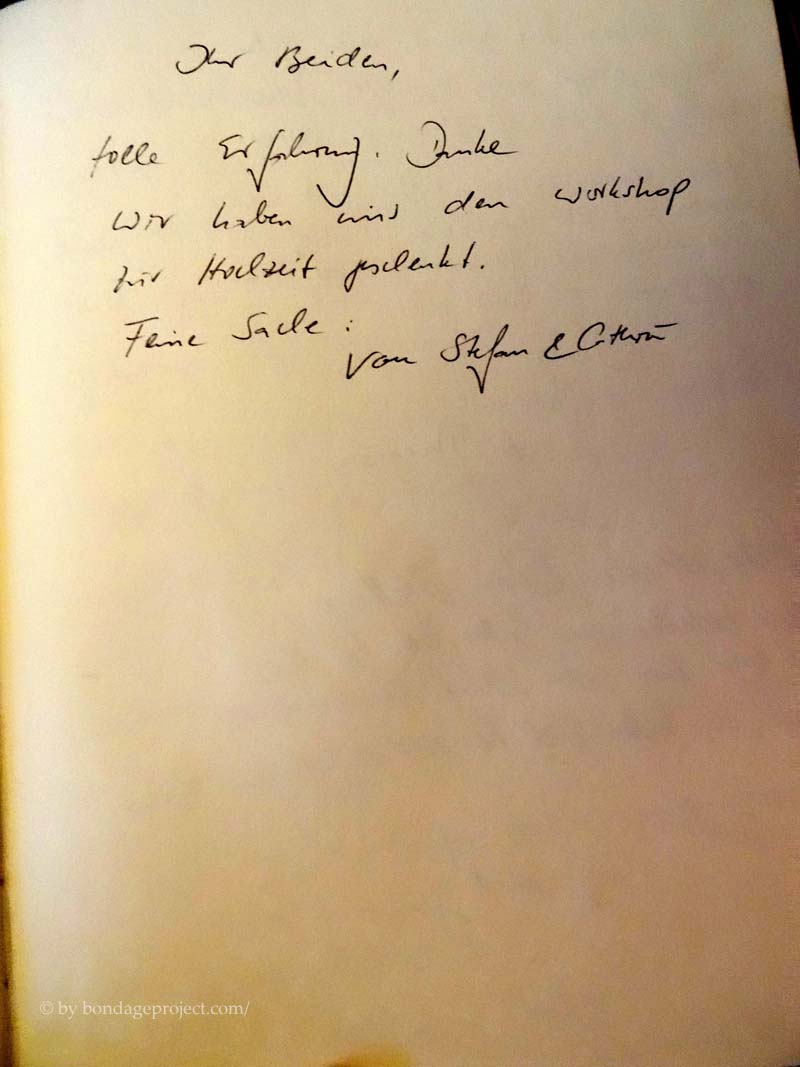 Ihr Beiden,
tolle Erfahrung. Danke
wir haben uns den workshop
zur Hochzeit geschenkt.
Feine Sache :
Von Stefan &
© by bondageproject.com/